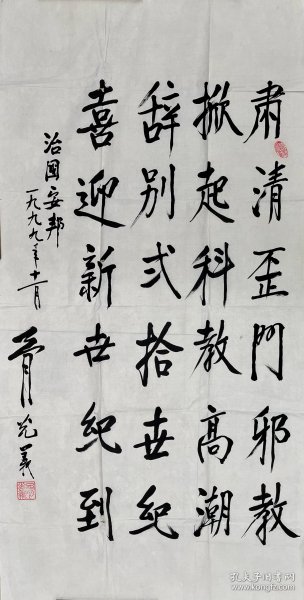 肃清歪門邪教
掀起科教高潮
辞别弍拾世纪
喜迎新世纪到
治國安邦
一九九九年十一月
孔夫子旧书网